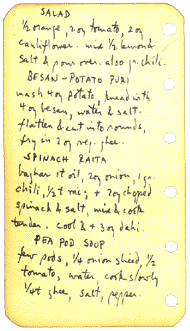 SALAD
1/2 orange, 2oz tomato, 2oz
cauliflower. mix 1/2 lemon &
salt & pour over. also gr. chili.
BESAN-POTATO PURI
mash 4oz potato, knead with
4oz besan, water & salt.
flatten & cut into rounds,
fry in 2oz veg. ghee.
SPINACH RAITA
baghar 1t oil, 2oz onion, 1 gr.
chili, 1/2t mix; + 20z chopped
spinach & salt, mix & cook
tender. cool & + 3oz dahi.
PEA POD SOUP
few pods, 1/4 onion sliced, 1/2
tomato, water cook slowly
1/4t ghee, salt, pepper.